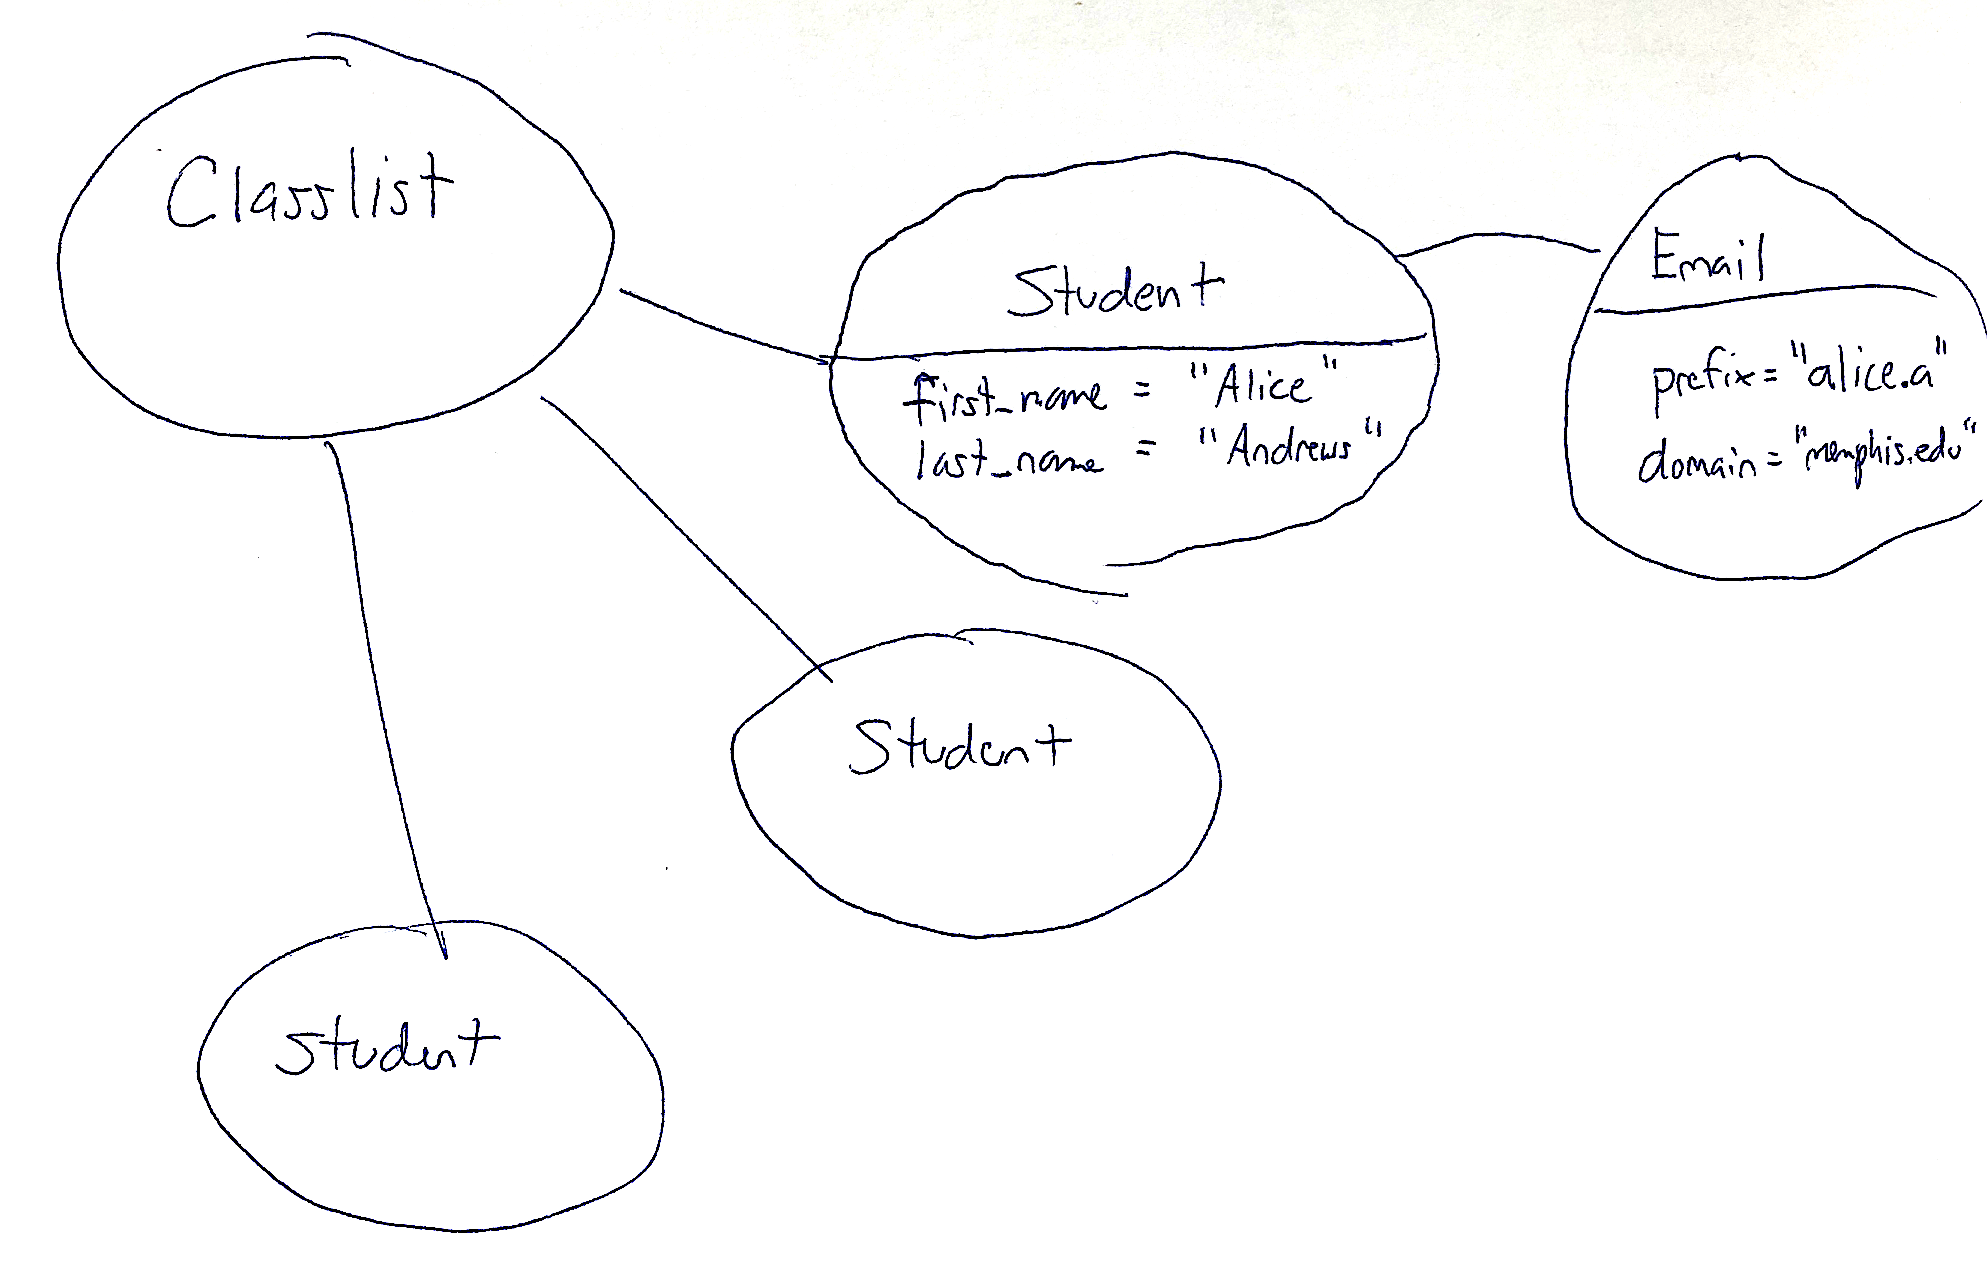 Classlist
Student
first_name = "Alice"
last_name = "Andrews"
Email
prefix = "alice.a"
domain = "memphis.edu"
Student
Student